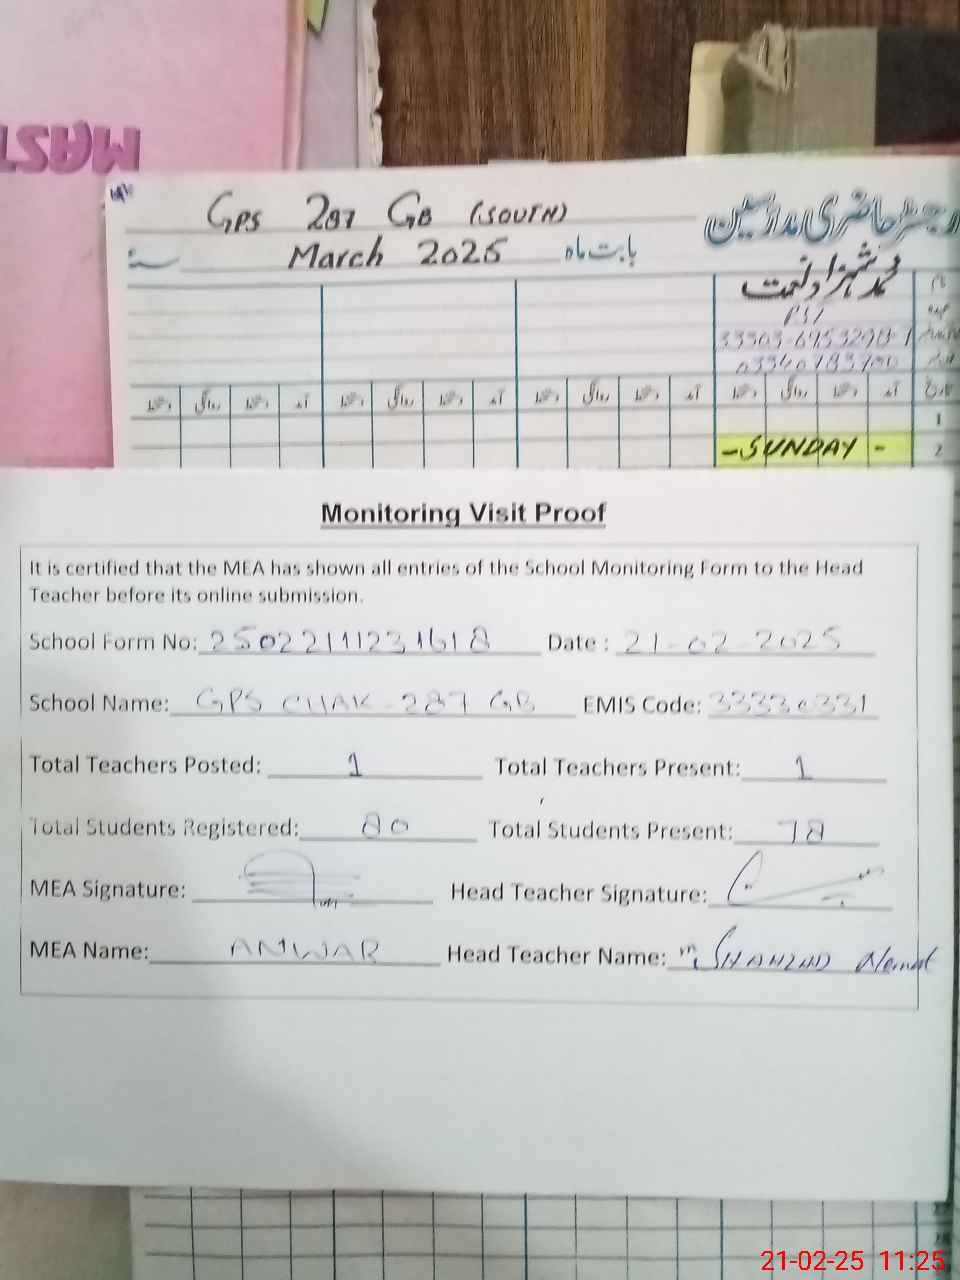 MAST
GPS 287 GB (SOUTH)
رجسٹر حاضری مدارسین
March 2025 بابت ماہ
محمد شہزاد نعمت
نام
PST
عہدہ
آمد دستخط روانگی دستخط آمد دستخط روانگی دستخط آمد دستخط روانگی دستخط آمد دستخط روانگی دستخط
1
-SUNDAY- 2
Monitoring Visit Proof
It is certified that the MEA has shown all entries of the School Monitoring Form to the Head
Teacher before its online submission.
School Form No: 25022111231618 Date : 21-02-2025
School Name: GPS CHAK-287 GB EMIS Code: 33330331
Total Teachers Posted: 1 Total Teachers Present: 1
Total Students Registered: 80 Total Students Present: 78
MEA Signature: Head Teacher Signature:
MEA Name: ANWAR Head Teacher Name: M SHAHZAD Nemat
21-02-25 11:25